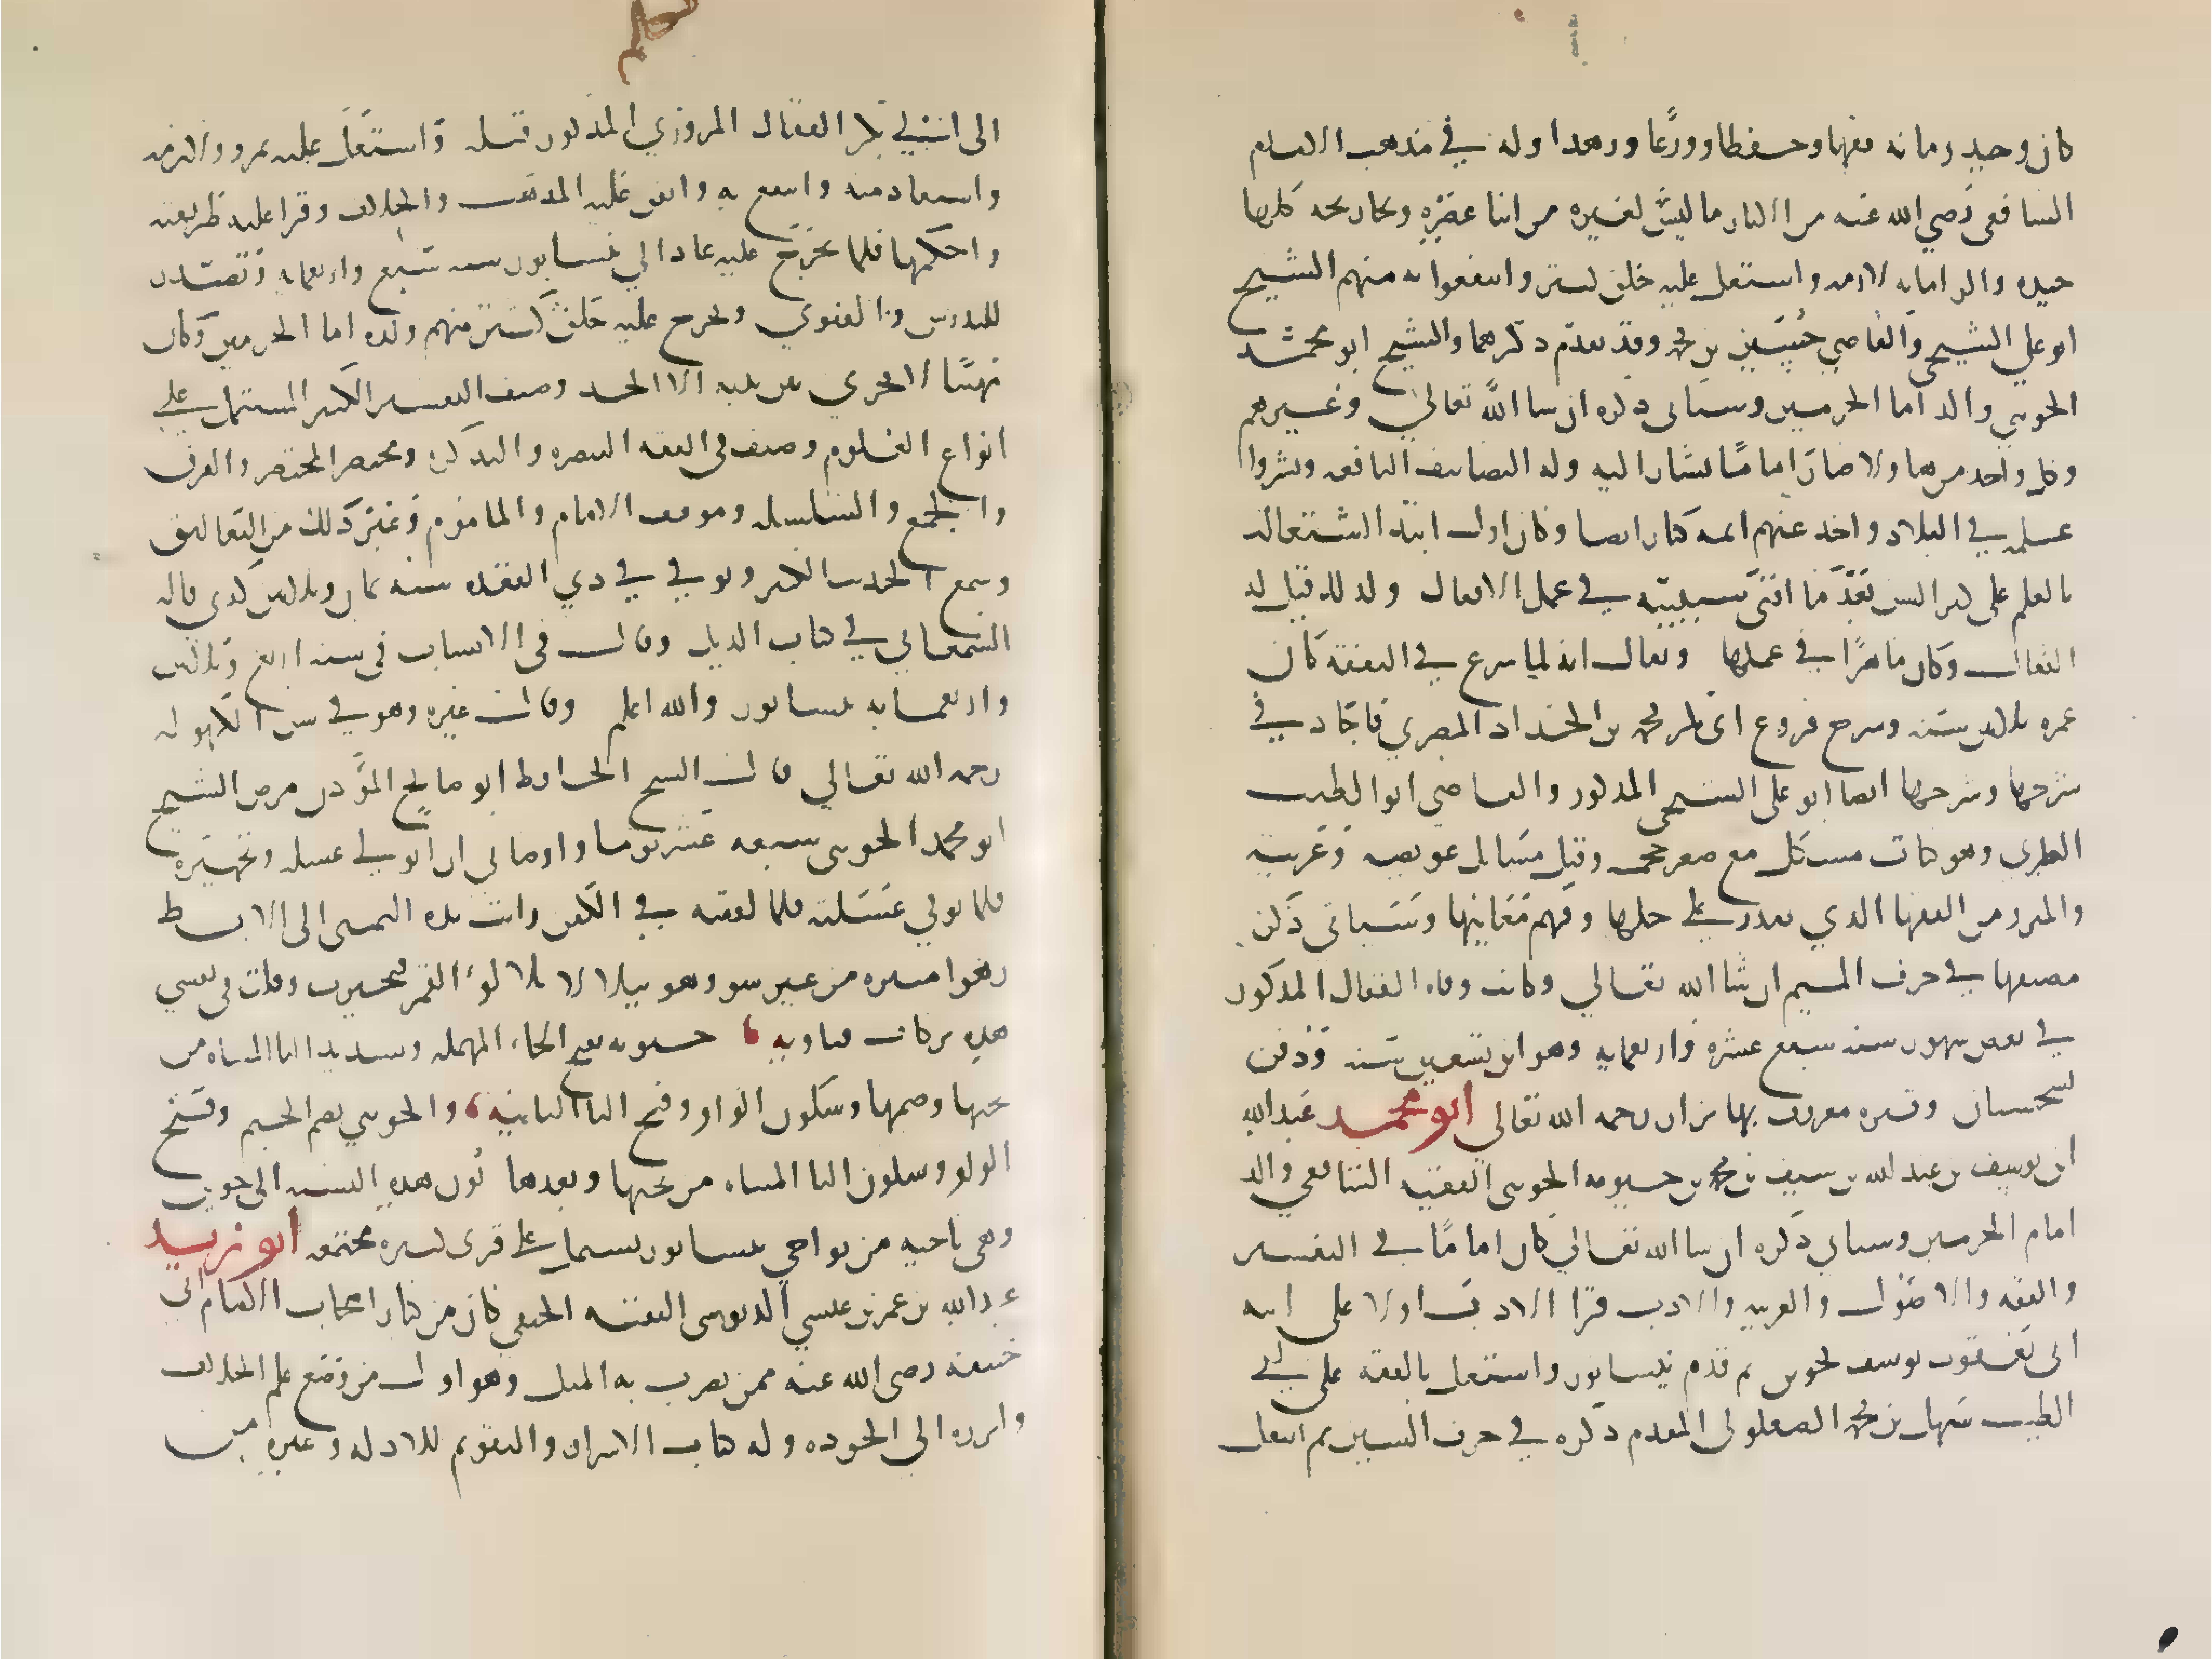 كان وحيد زمانه فقها وحفظا وورعا وزهدا وله في مذهب الامام
الشافعي رضي الله عنه من الاثار ما ليس لغيره من ابنا عصره وتخاريجه كلها
جيده والزاماته لازمه واشتغل عليه خلق كثير وانتفعوا به منهم الشيخ
ابو علي السنجي والقاضي حسين بن محمد وقد تقدم ذكرهما والشيخ ابو محمد
الجويني والد امام الحرمين وسياتي ذكره ان شا الله تعالي وغيرهم
وكل واحد من هاولا صار اماما يشار اليه وله التصانيف النافعه ونشروا
علمه في البلاد واخذ عنهم ايمه كبار ايضا وكان اول ابتدا اشتغاله
بالعلم على كبر السن بعد ما افنى شبيبته في عمل الاقفال ولذلك قيل له
القفال وكان ماهرا في عملها ويقال انه لما شرع في التفقه كان
عمره ثلاثين سنه وشرح فروع ابي بكر محمد بن الحداد المصري فاجاد في
شرحها وشرحها ايضا ابو علي السنجي المذكور والقاضي ابو الطيب
الطبري وهو كتاب مشكل مع صغر حجمه وفيه مسائل عويصه وغريبه
والمبرز من الفقها الذي يقدر علي حلها وفهم معانيها وسياتي ذكر
مصنفها في حرف الميم ان شا الله تعالي وكانت وفاه القفال المذكور
في بعض شهور سنه سبع عشره واربعمايه وهو ابن تسعين سنه ودفن
بسجستان وقبره معروف بها يزار رحمه الله تعالى ابو محمد عبد الله
ابن يوسف بن عبد الله بن يوسف بن محمد بن حيويه الجويني الفقيه الشافعي والد
امام الحرمين وسياتي ذكره ان شا الله تعالي كان اماما في التفسير
والفقه والاصول والعربيه والادب قرا الادب اولا على ابيه
ابي يعقوب يوسف بجوين ثم قدم نيسابور واشتغل بالفقه على ابي
الطيب سهل بن محمد الصعلوكي المقدم ذكره في حرف السين ثم انتقل
الى ابي بكر القفال المروزي المذكور قبله واشتغل عليه بمرو ولازمه
واستفاد منه وانتفع به واتقن عليه المذهب والخلاف وقرا عليه طريقته
واحكمها فلما تخرج عليه عاد الي نيسابور سنه سبع واربعمايه وتصدر
للتدريس والفتوي وتخرج عليه خلق كثير منهم ولده امام الحرمين وكان
مهيبا لا يجري بين يديه الا الجد وصنف التفسير الكبير المشتمل علي
انواع العلوم وصنف في الفقه التبصره والتذكره ومختصر المختصر والفرق
والجمع والسلسله وموقف الامام والماموم وغير ذلك من التعاليق
وسمع الحديث الكثير وتوفي في ذي القعده سنه ثمان وثلاثين كذي قاله
السمعاني في كتاب الذيل وقال في الانساب في سنه اربع وثلاثين
واربعمايه بنيسابور والله اعلم وقال غيره وهو في سن الكهوله
رحمه الله تعالي قال الشيخ الحافظ ابو صالح المؤذن مرض الشيخ
ابو محمد الجويني سبعه عشر يوما واوصاني ان اتولي غسله وتجهيزه
فلما توفي غسلته فلما لففته في الكفن رايت يده اليمنى الى الابط
زهرا منيره من غير سو وهو يتلالا تلالؤ القمر فتحيرت وقلت في نفسي
هذه بركات فتاويه حيويه بفتح الحاء المهمله وتشديد اليا المثناه من
تحتها وضمها وسكون الواو وفتح اليا الثانيه والجويني بضم الجيم وفتح
الواو وسكون اليا المثناه من تحتها وبعدها نون هذه النسبه الى جوين
وهي ناحيه من نواحي نيسابور تشتمل علي قرى كثيره مجتمعه ابو زيد
عبد الله بن عمر بن عيسي الدبوسي الفقيه الحنفي كان من كبار اصحاب الامام ابي
حنيفه رضي الله عنه ممن يضرب به المثل وهو اول من وضع علم الخلاف
وابرزه الي الوجود وله كتاب الاسرار والتقويم للادله وغيره من